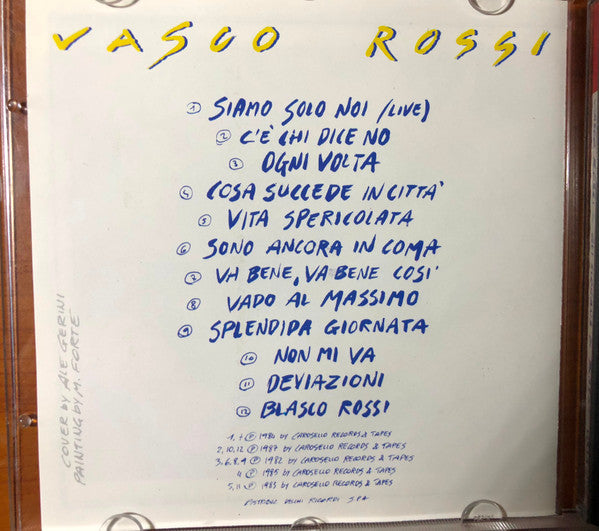 VASCO ROSSI
① SIAMO SOLO NOI (LIVE)
② C'È CHI DICE NO
③ OGNI VOLTA
④ COSA SUCCEDE IN CITTA'
⑤ VITA SPERICOLATA
⑥ SONO ANCORA IN COMA
⑦ VA BENE, VA BENE COSI'
⑧ VADO AL MASSIMO
⑨ SPLENDIDA GIORNATA
⑩ NON MI VA
⑪ DEVIAZIONI
⑫ BLASCO ROSSI
1, 7 Ⓟ 1984 BY CAROSELLO RECORDS & TAPES
2, 10, 12 Ⓟ 1987 BY CAROSELLO RECORDS & TAPES
3, 6, 8, 9 Ⓟ 1982 BY CAROSELLO RECORDS & TAPES
4 Ⓟ 1985 BY CAROSELLO RECORDS & TAPES
5, 11 Ⓟ 1983 BY CAROSELLO RECORDS & TAPES
DISTRIBUZ. RICORDI S.P.A
COVER BY ALE GERINI
PAINTING BY M. FORTE